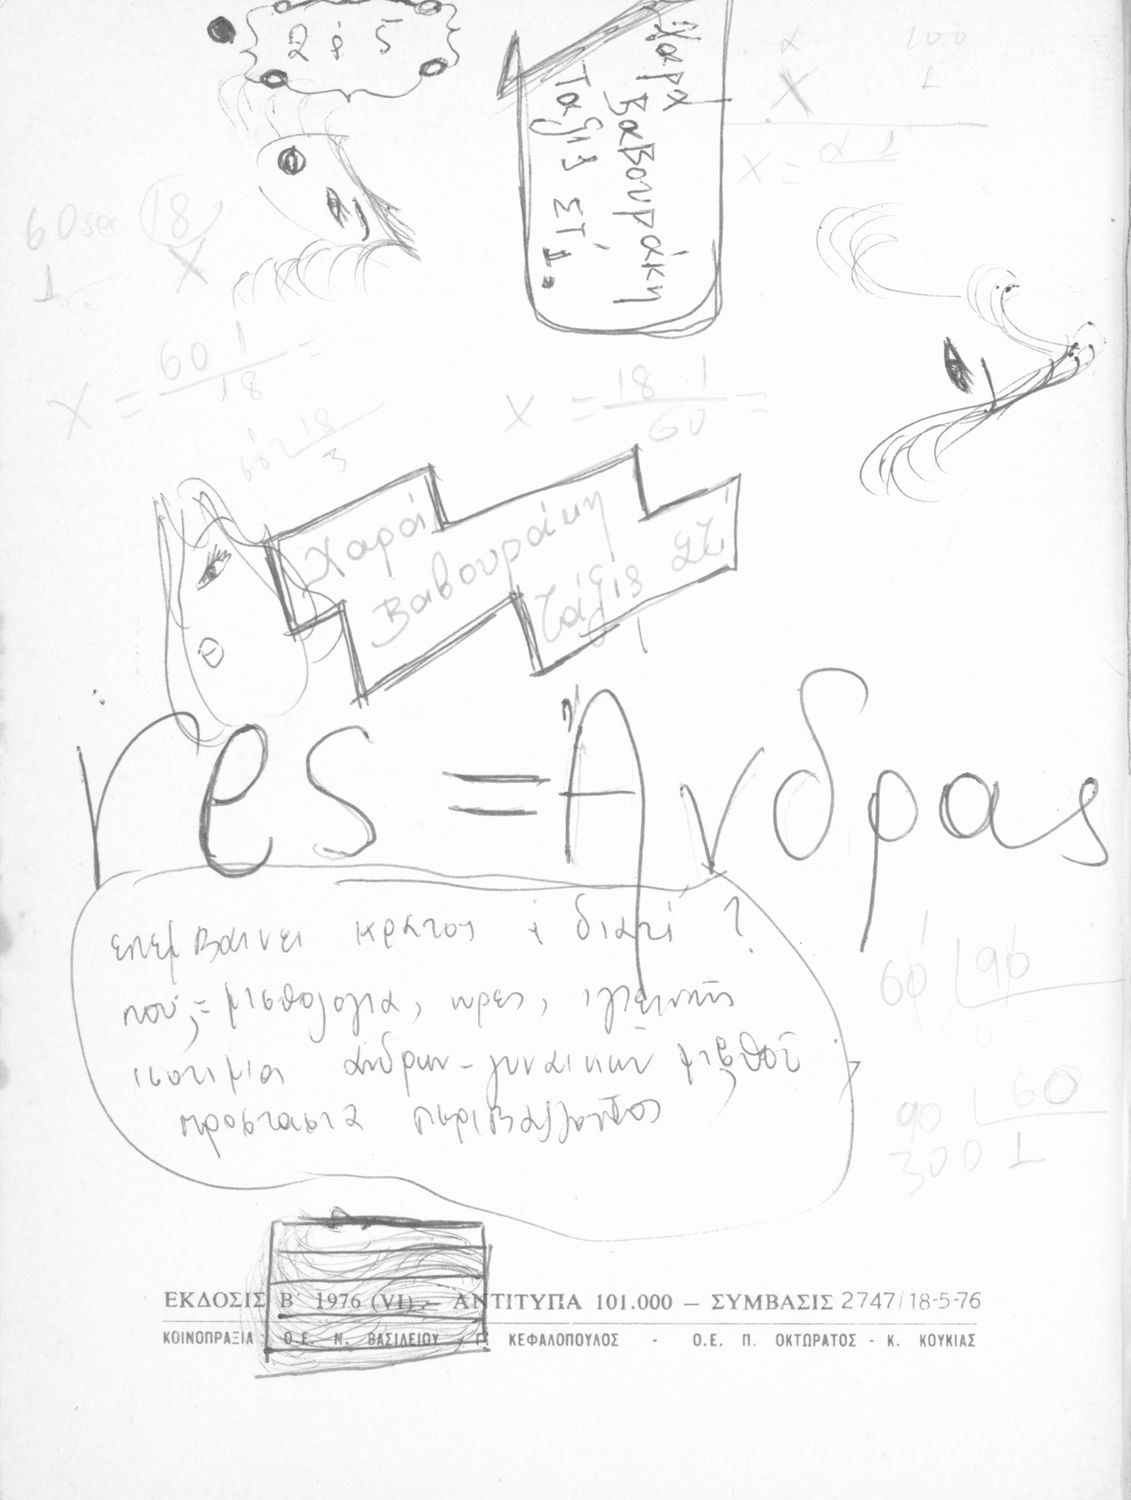 Χαρά
Βαβουράκη
Τάξις ΣΤ΄ 1.
α 100
X 1
X =
60sec 18
1 X
X = 60 · 1 / 18 =
X = 18 · 1 / 60 =
18
3
Χαρά
Βαβουράκη
Τάξις ΣΤ΄
res = Ἄνδρας
επεμβαινει κρατος διατί ?
που; = μισθολογια, ωρες, υγιεινής
ισοτιμια ανδρων - γυναικών μισθού
προστασια περιβαλλοντος
60 90
0
90 60
300 1
ΕΚΔΟΣΙΣ Β΄ 1976 (VI) — ΑΝΤΙΤΥΠΑ 101.000 — ΣΥΜΒΑΣΙΣ 2747/18-5-76
ΚΟΙΝΟΠΡΑΞΙΑ: Ο.Ε. Ν. ΒΑΣΙΛΕΙΟΥ - Γ. ΚΕΦΑΛΟΠΟΥΛΟΣ - Ο.Ε. Π. ΟΚΤΩΡΑΤΟΣ - Κ. ΚΟΥΚΙΑΣ